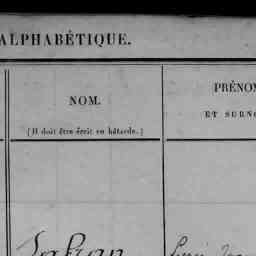 ALPHABÉTIQUE.
NOM.
(Il doit être écrit en bâtarde.)
PRÉNO
ET SURN